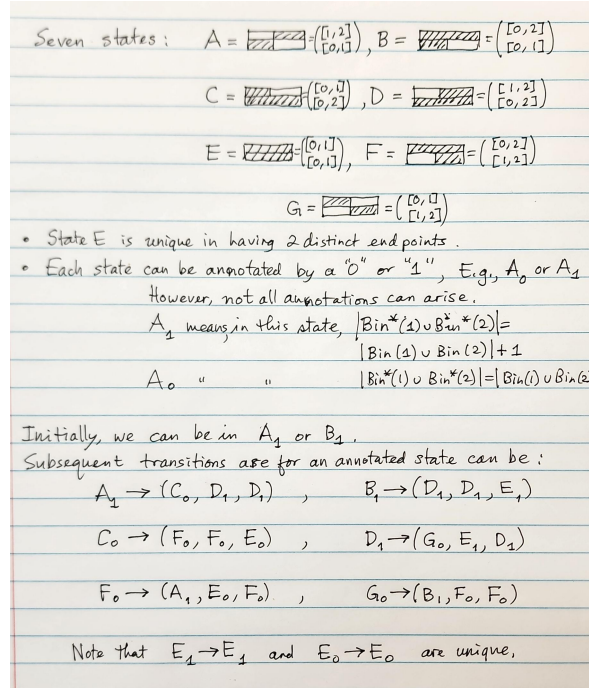 Seven states: A = =([1,2] [0,1]), B = =([0,2] [0,1])
C = =([0,1] [0,2]), D = =([1,2] [0,2])
E = =([0,1] [0,1]), F = =([0,2] [1,2])
G = =([0,1] [1,2])
• State E is unique in having 2 distinct endpoints.
• Each state can be annotated by a "0" or "1", E.g., A₀ or A₁
However, not all annotations can arise.
A₁ means, in this state, |Bin*(1)∪Bin*(2)|=
|Bin(1)∪Bin(2)|+1
A₀ " " |Bin*(1)∪Bin*(2)|=|Bin(1)∪Bin(2
Initially, we can be in A₁ or B₁.
Subsequent transitions are for an annotated state can be:
A₁ → (C₀, D₁, D₁) , B₁ → (D₁, D₁, E₁)
C₀ → (F₀, F₀, E₀) , D₁ → (G₀, E₁, D₁)
F₀ → (A₁, E₀, F₀) , G₀ → (B₁, F₀, F₀)
Note that E₁ → E₁ and E₀ → E₀ are unique.